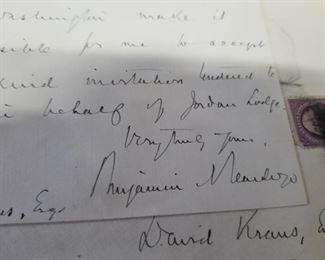 Washington make it
sible for me to accept
kind invitation tendered to
behalf of Jordan Lodge.
Very truly yours,
Benjamin
us, Esq.
David Kraus, E